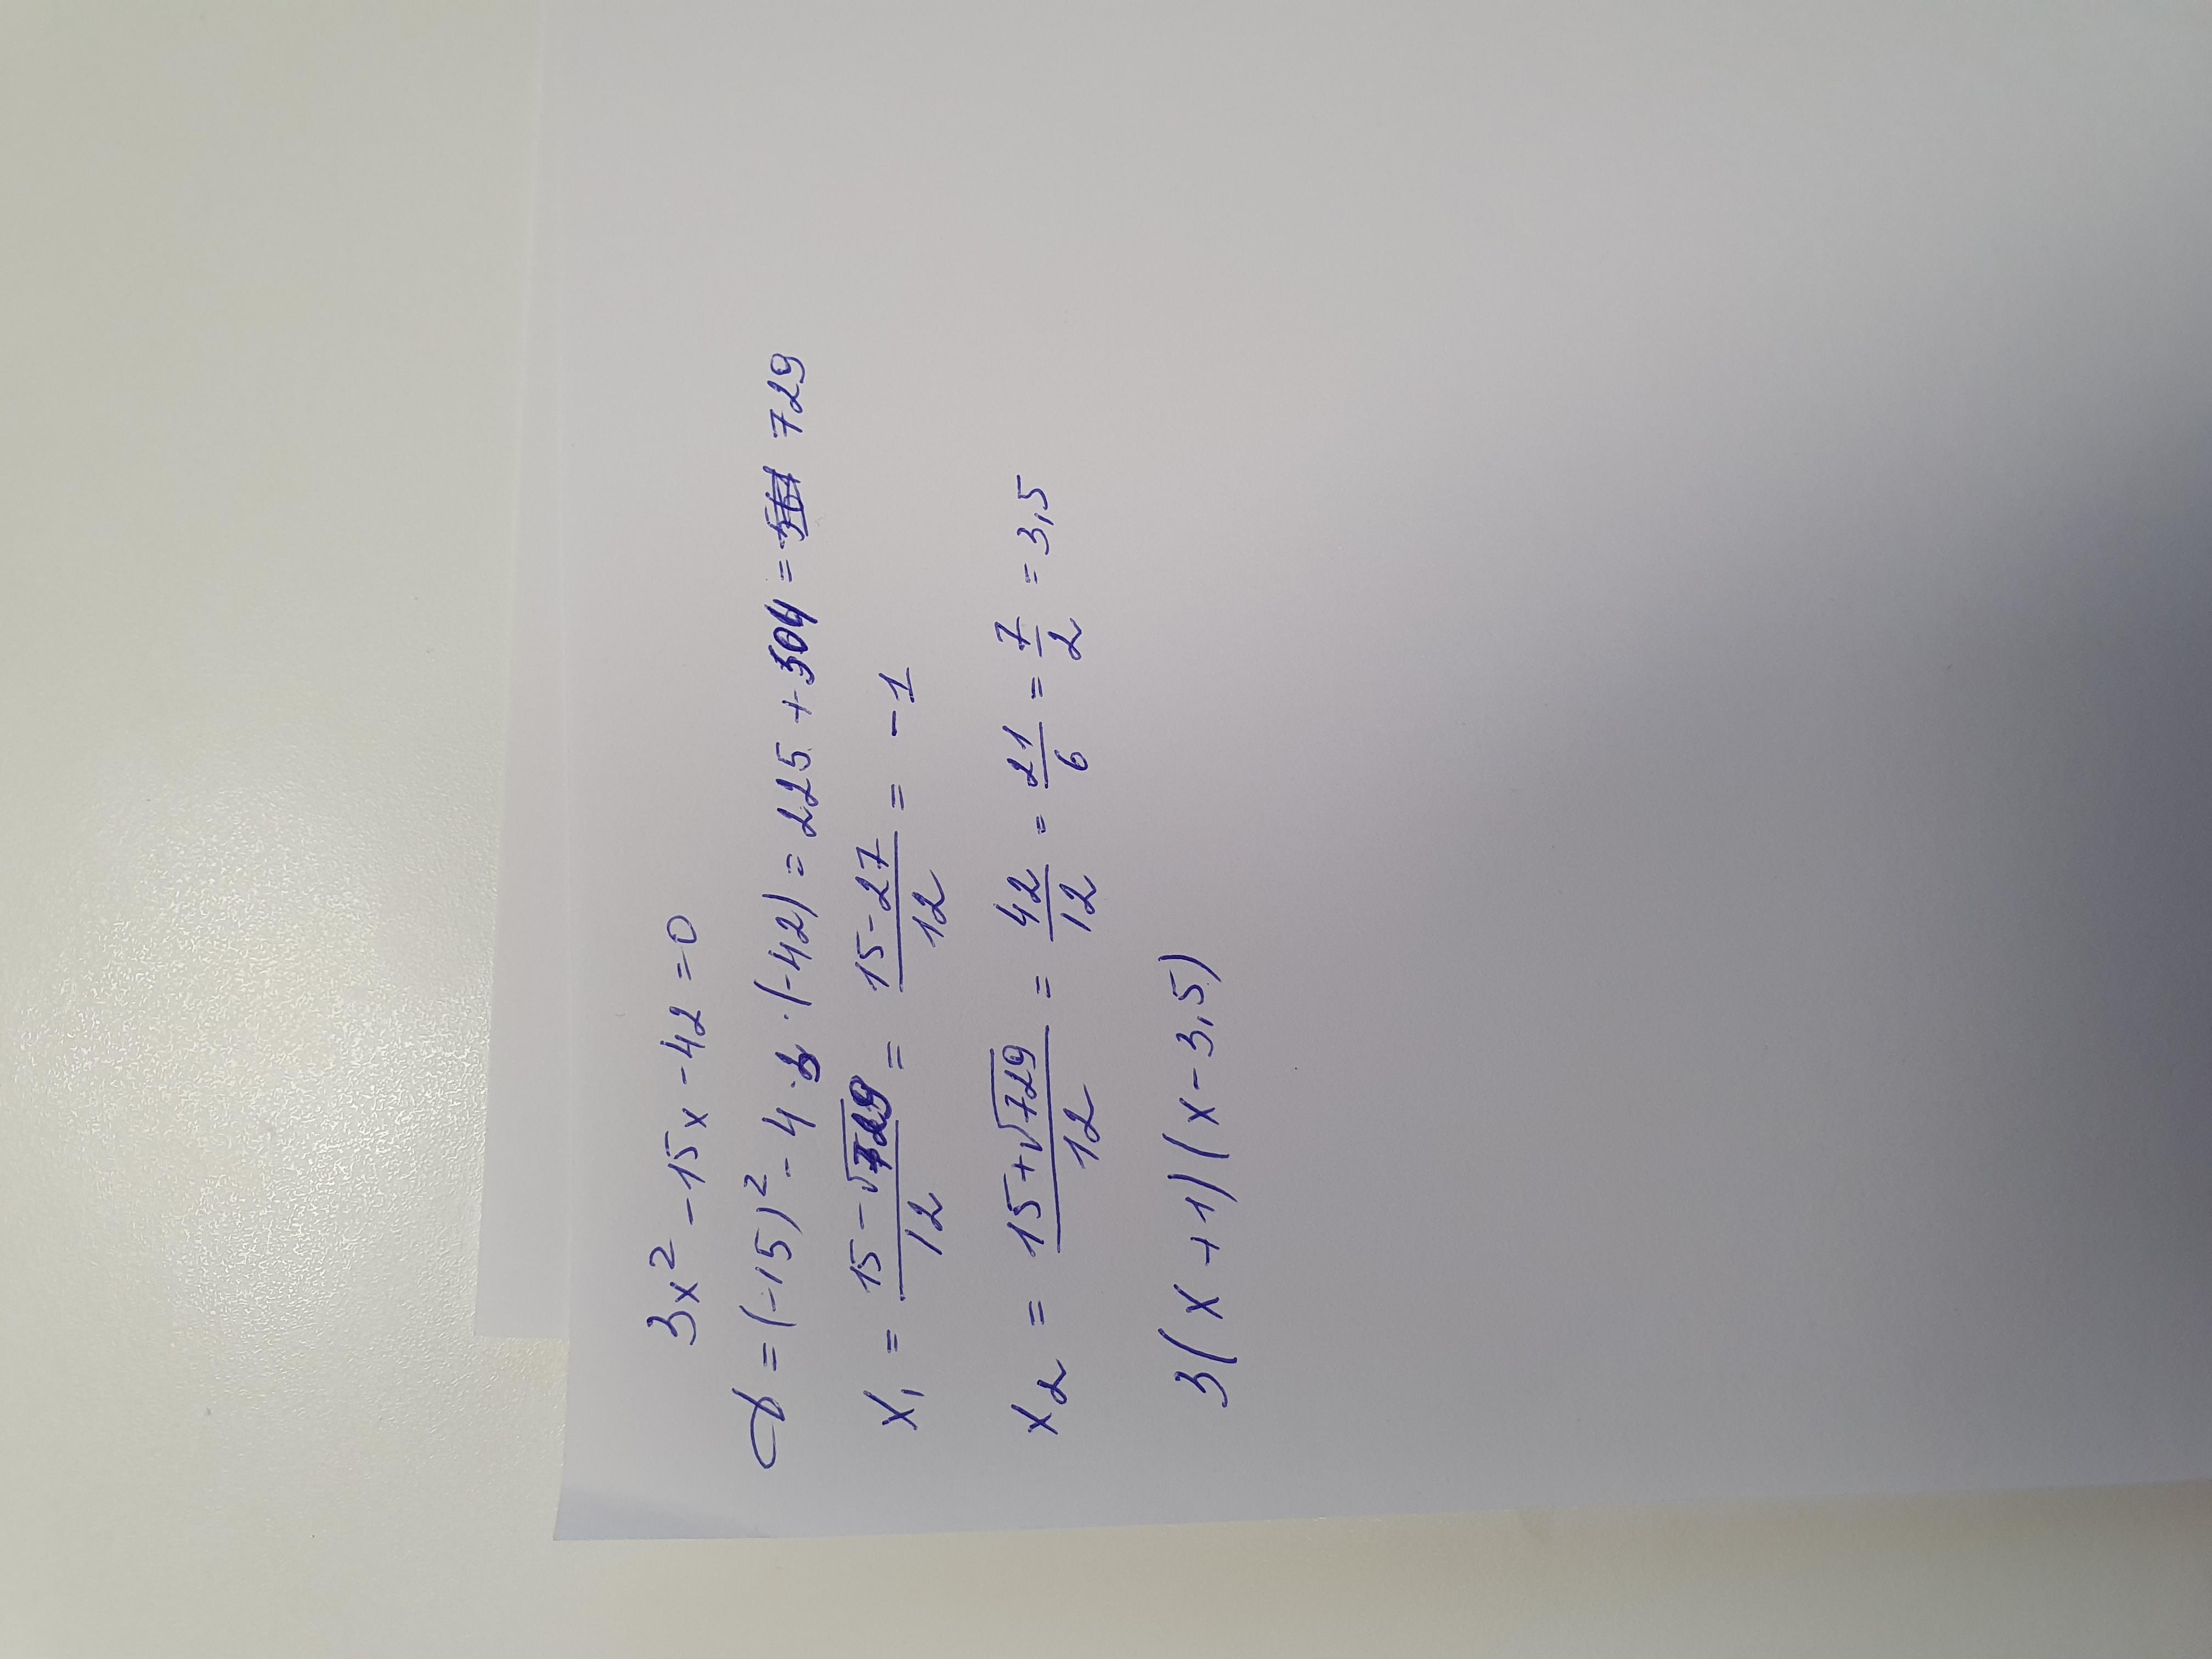 3x² - 15x - 42 = 0
D = (-15)² - 4 · 3 · (-42) = 225 + 504 = 729
x₁ = (15 - √729)/12 = (15 - 27)/12 = -1
x₂ = (15 + √729)/12 = 42/12 = 21/6 = 7/2 = 3,5
3(x + 1)(x - 3,5)